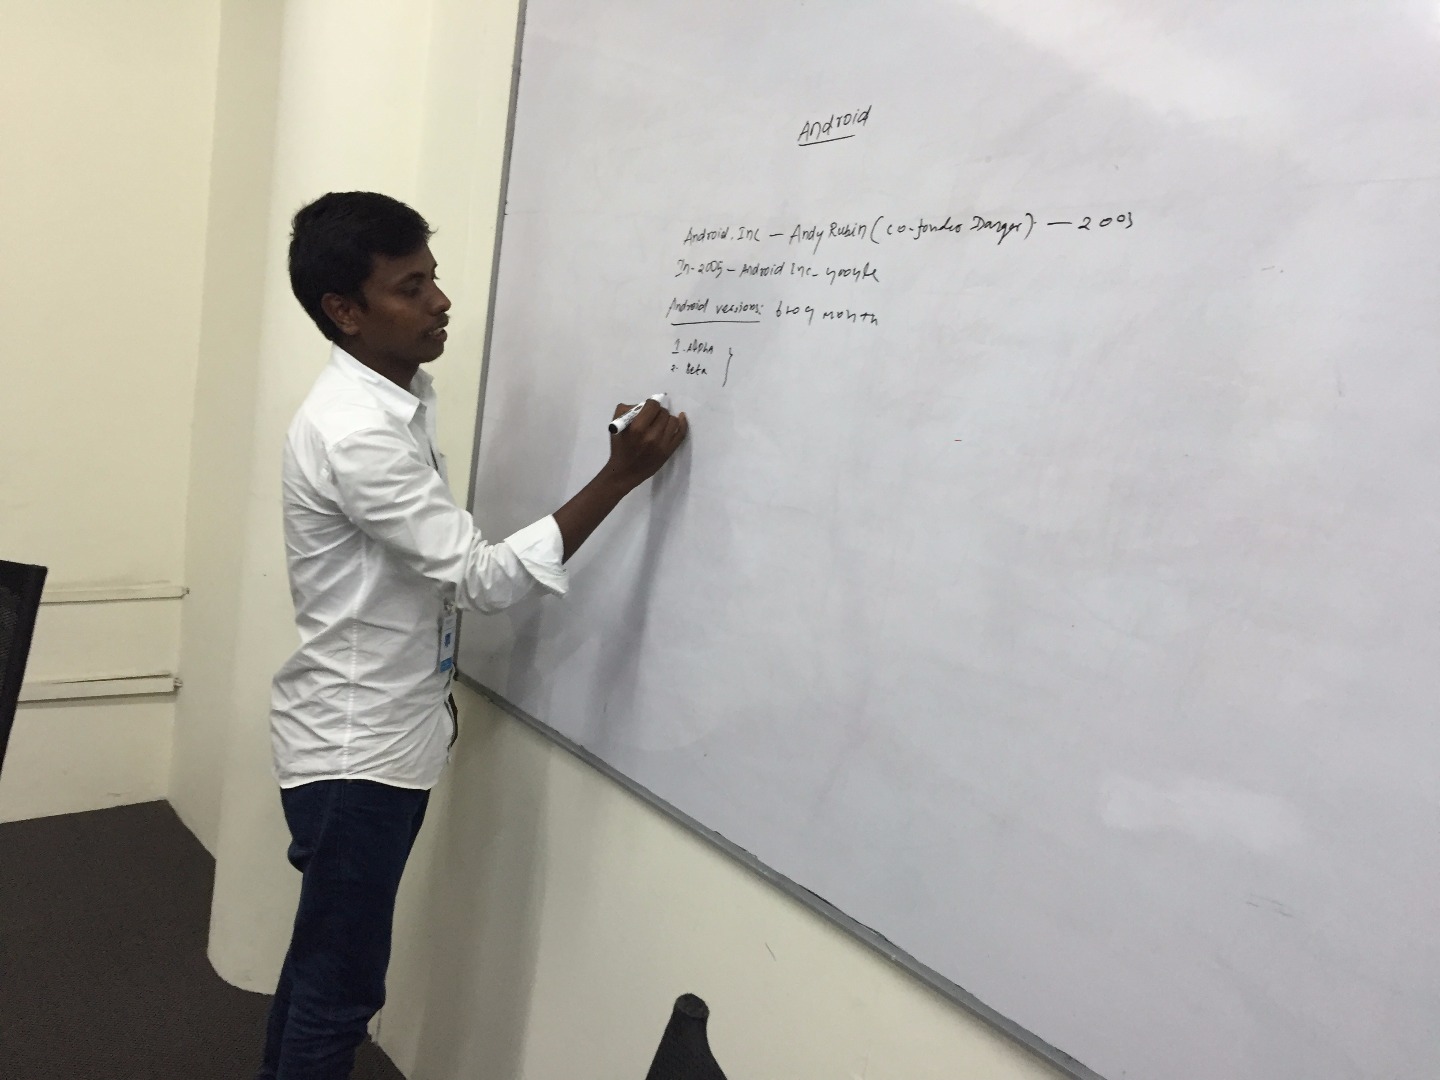 Android
Android.Inc – Andy Rubin (co-founder Danger) – 2003
In-2005 – Android Inc – google
Android versions: 6 to 9 month
1. Alpha
2. Beta